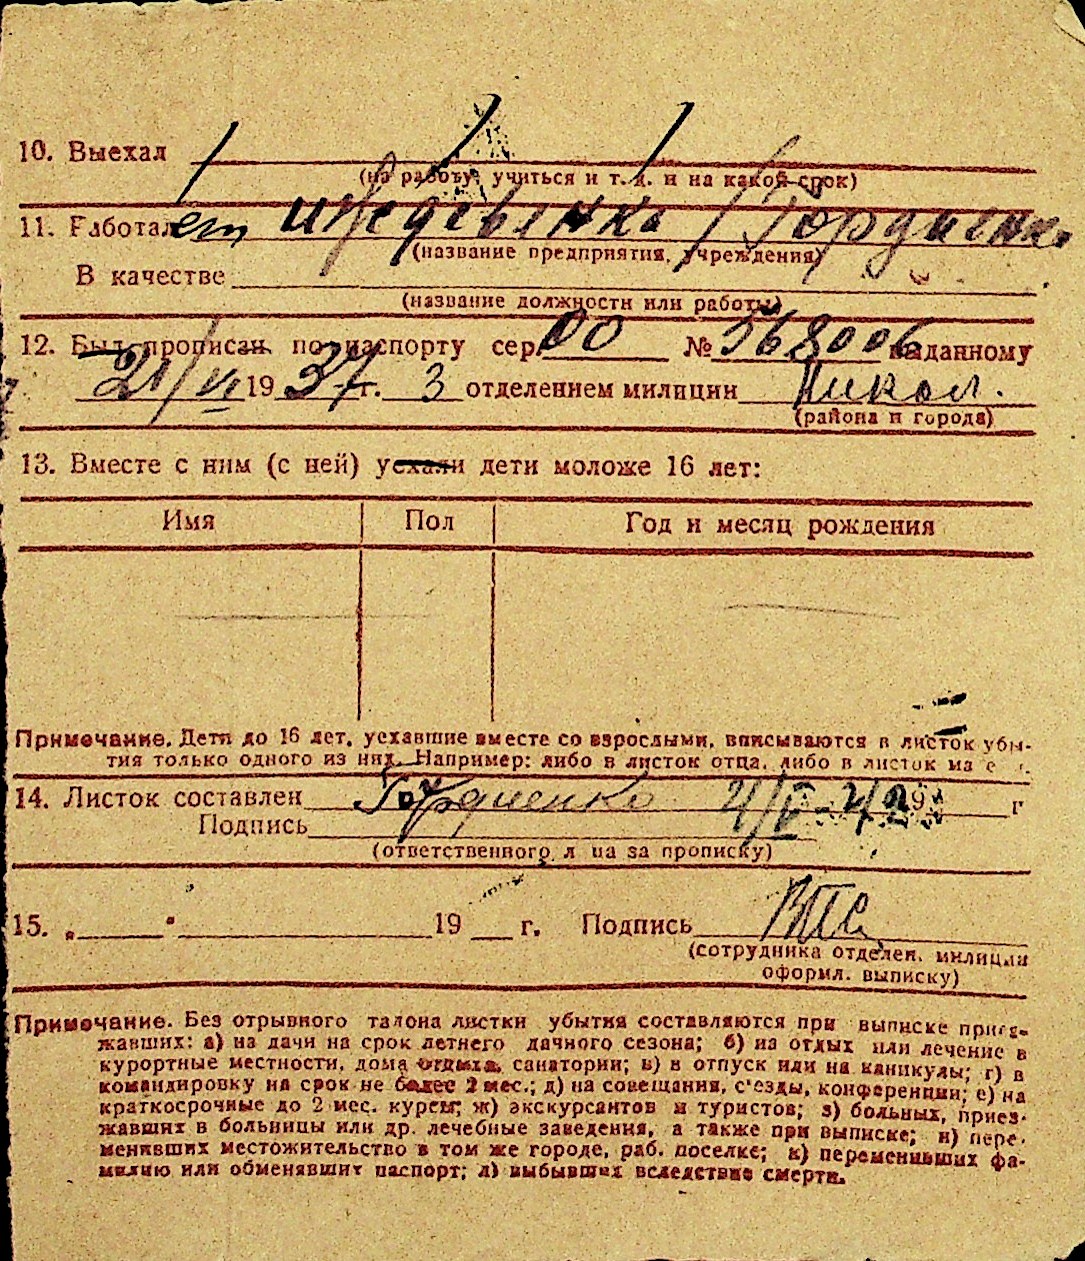 10. Выехал
(на работу, учиться и т. д. и на какой срок)
11. Работал
иждевенка / Гордиенко
(название предприятия, учреждения)
В качестве
(название должности или работы)
12. Был прописан по паспорту сер. ОО № 568006 выданному
21/VI 1937 г. 3 отделением милиции Никол.
(района и города)
13. Вместе с ним (с ней) уехали дети моложе 16 лет:
Имя Пол Год и месяц рождения
Примечание. Дети до 16 лет, уехавшие вместе со взрослыми, вписываются в листок убы-
тия только одного из них. Например: либо в листок отца, либо в листок
14. Листок составлен Гордиенко 4/V-42 г
Подпись
(ответственного л ца за прописку)
15. „ “ 19 г. Подпись
(сотрудника отделен. милиции
оформл. выписку)
Примечание. Без отрывного талона листки убытия составляются при выписке приез-
жавших: а) на дачи на срок летнего дачного сезона; б) на отдых или лечение в
курортные местности, дома отдыха, санатории; в) в отпуск или на каникулы; г) в
командировку на срок не более 2 мес.; д) на совещания, с'езды, конференции; е) на
краткосрочные до 2 мес. курсы; ж) экскурсантов и туристов; з) больных, приез-
жавших в больницы или др. лечебные заведения, а также при выписке; и) пере-
менивших местожительство в том же городе, раб. поселке; к) переменивших фа-
милию или обменявших паспорт; л) выбывших вследствие смерти.